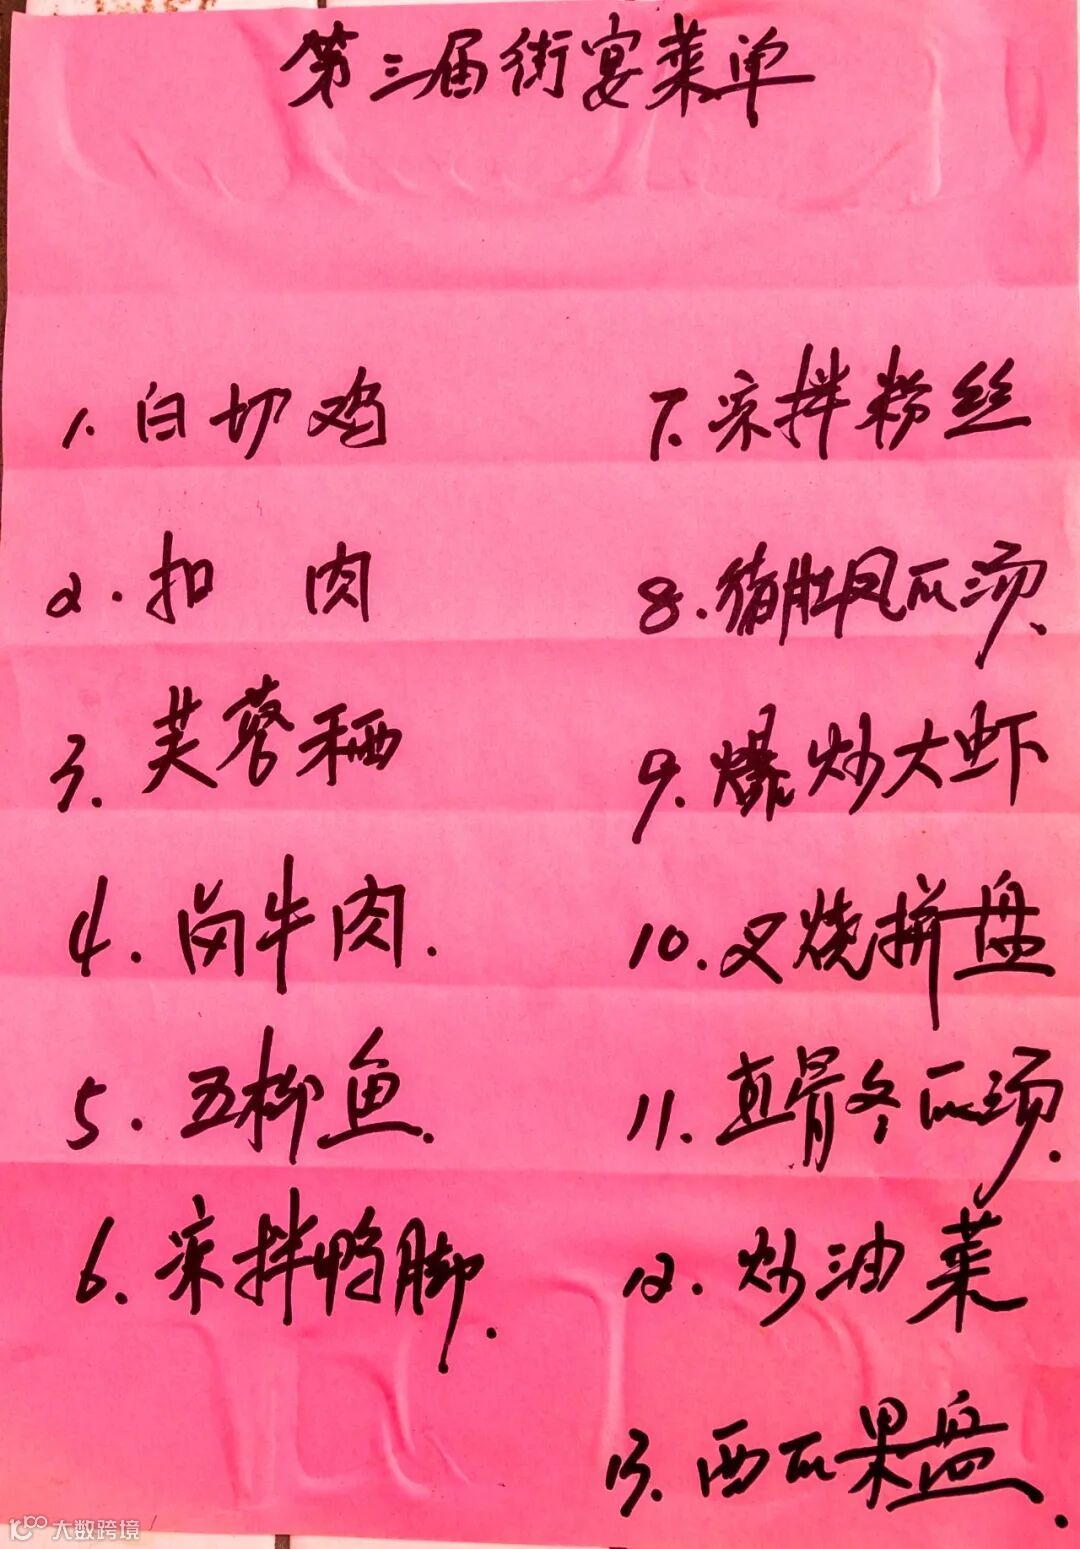 第三届街宴菜单
1. 白切鸡
2. 扣肉
3. 芙蓉
4. 卤牛肉.
5. 五柳鱼.
6. 凉拌鸭脚.
7. 凉拌粉丝
8. 猪肚凤爪汤.
9. 爆炒大虾
10. 叉烧拼盘
11. 直骨冬瓜汤.
12. 炒油菜
13. 西瓜果盘.
大数跨境